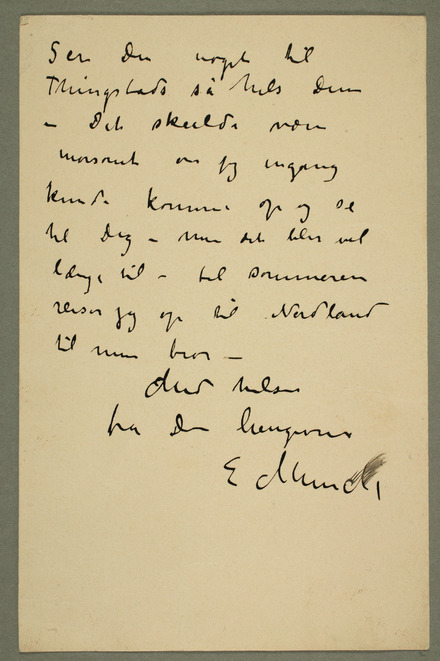 Ser du noget til
Thingstads så hils dem
– Det skulde være
morsomt om jeg engang
kunde komme op og se
til Dig – men det blir vel
længe til – til sommeren
reiser jeg op til Nordland
til min bror –
Med hilsen
fra Din hengivne
E Munch